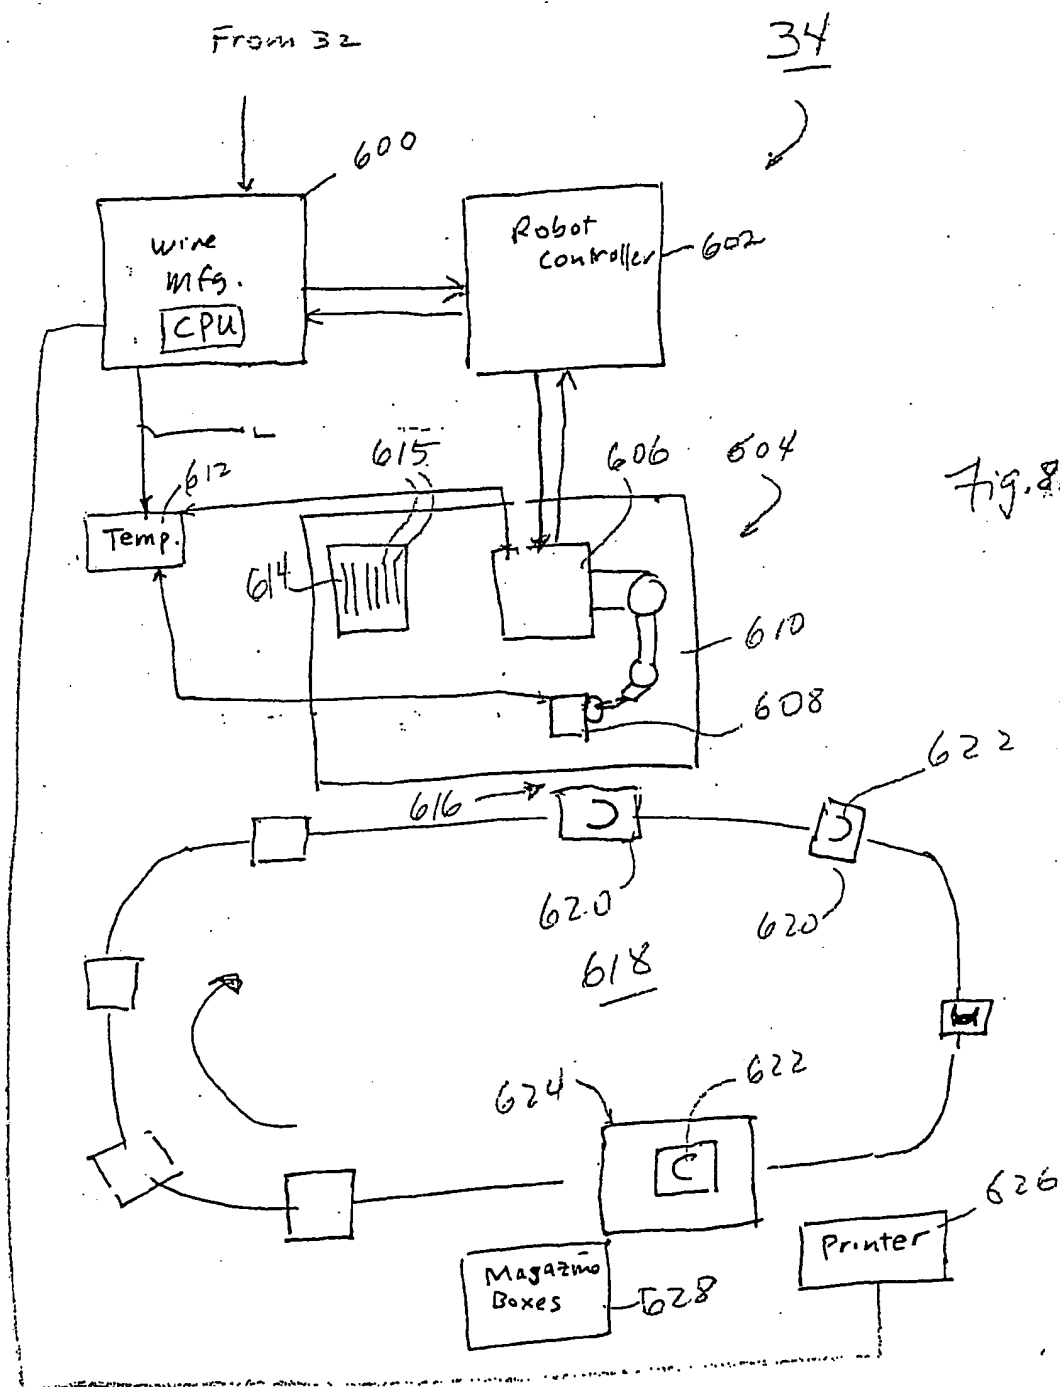 From 32
34
600
Wire
Mfg.
CPU
Robot
Controller
602
L
612
615
606
604
Fig. 8
Temp.
614
610
608
622
616
620
620
618
622
624
626
Printer
Boxes
628